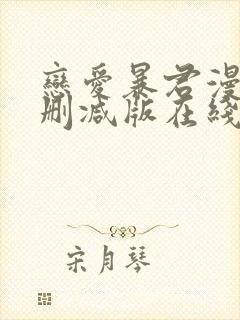 戀愛暴君漫
刪減版在綫
宋月琴